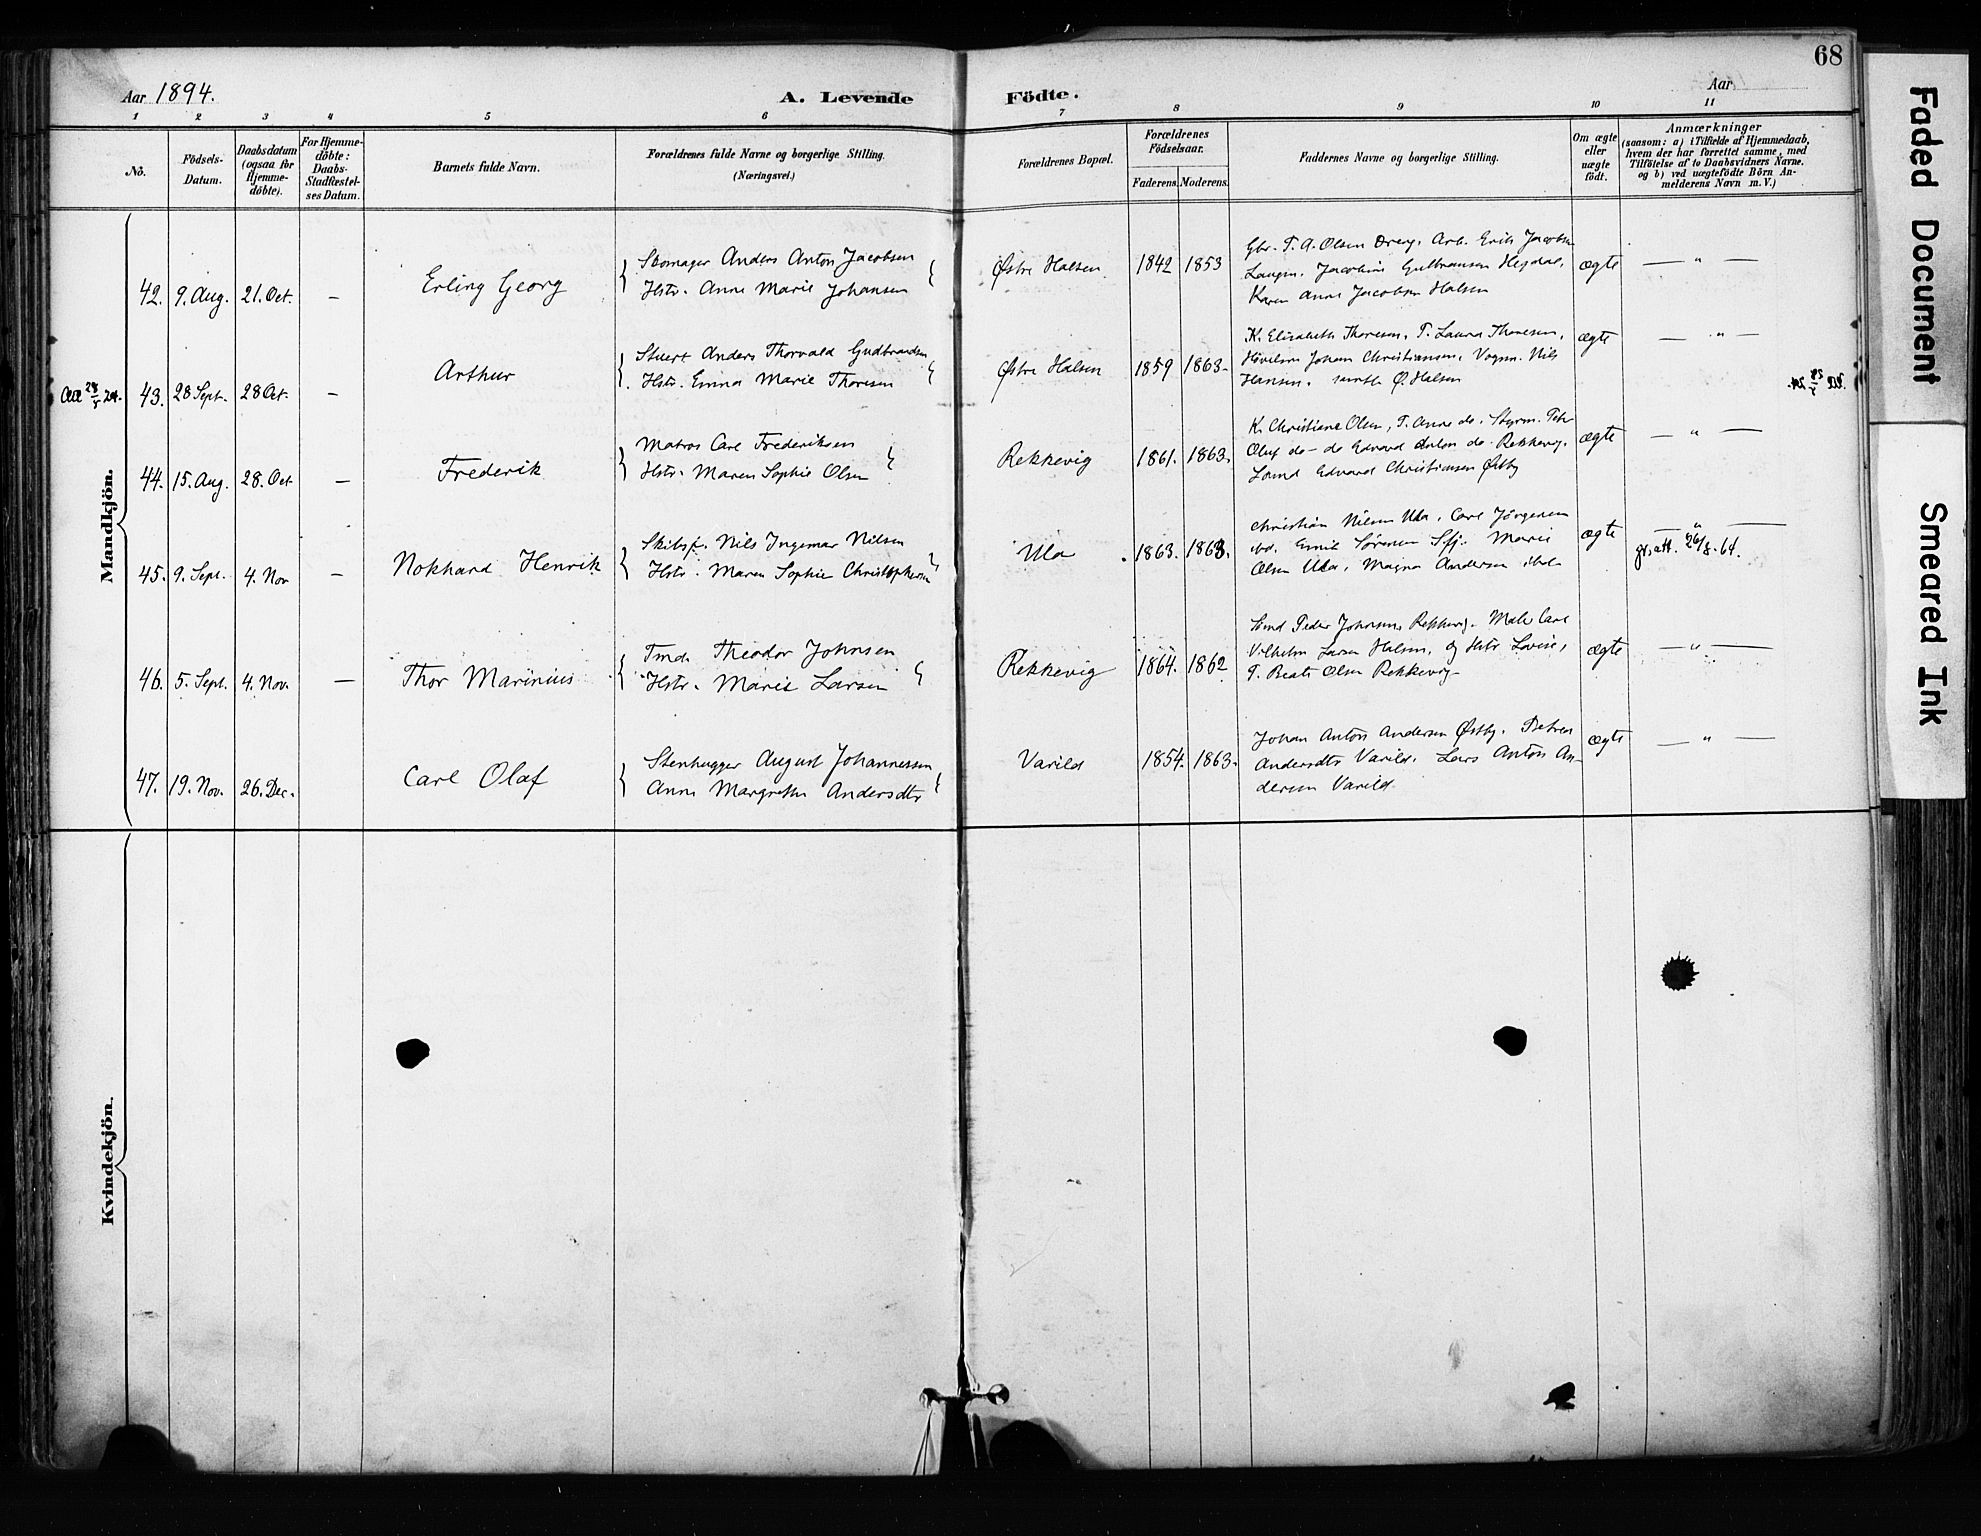 68
Aar 1894.
A. Levende Födte.
Aar
1 2 3 4 5 6 7 8 9 10 11
No.
Födsels-
Datum.
Daabsdatum
(ogsaa for
Hjemme-
döbte).
For Hjemme-
döbte:
Daabs-
Stadfæstel-
ses Datum.
Barnets fulde Navn.
Forældrenes fulde Navne og borgerlige Stilling.
(Næringsvei.)
Forældrenes Bopæl.
Forældrenes
Födselsaar.
Faderens. Moderens.
Faddernes Navne og borgerlige Stilling.
Om ægte
eller
uægte
födt.
Anmærkninger
(saasom: a) i Tilfælde af Hjemmedaab,
hvem der har forrettet samme, med
Tilföielse af to Daabsvidners Navne.
og b) ved uægtefödte Börn An-
melderens Navn m. V.)
Mandkjön.
42. 9. Aug. 21. Oct. — Erling Georg
Skomager Anders Anton Jacobsen
Hstr. Anne Marie Johansen
Østre Halsen 1842 1853
Gbr. T. A. Olsen Dreng. Arb. Erik Jacobsen
Jacobine Gulbransen
Karen Anne Jacobsen Halsen
ægte — " —
43. 28 Sept. 28 Oct. — Arthur
Stuert Anders Thorvald Gudbrandsen
Hstr. Emma Marie Thoresen
Østre Halsen 1859 1863.
K. Elisabeth Thoresen, P. Laura Thoresen,
Johan Christiansen, Vogm. Nils
Hansen. samtl. Ø. Halsen
ægte — " —
44. 15. Aug. 28. Oct — Frederik
Matros Carl Frederiksen
Hstr. Maren Sophie Olsen
Rekkevig 1861. 1863.
K. Christiane Olsen, P. Anne do. Styrm. Petr
Oluf do — do Edvard Anton do Rekkevig.
Edvard Christiansen Østby
ægte — " —
45. 9. Sept. 4. Nov — Nokhard Henrik
Skibsf. Nils Ingemar Nilsen
Hstr. Maren Sophie Christophersen
Ula 1863. 1863.
Christian Nilsen Ula, Carl Jörgensen
ibd. Emil Sørensen Sfj. Marie
Olsen Ula, Magna Andersen ibd.
ægte — " —
gr. att. 26/8-64.
46. 5. Sept. 4. Nov. — Thor Marinius
Tmd. Theodor Johnsen
Hstr. Marie Larsen
Rekkevig 1864. 1862
Peder Johnsens Rekkevig. Male Carl
Vilhelm Larsen Halsen, og Hstr Lovise,
P. Beate Olsen Rekkevig
ægte — " —
47. 19. Nov. 26. Dec. Carl Olaf
Stenhugger August Johannessen
Anne Margrethe Andersdtr
Varild 1854. 1863.
Johan Anton Andersen Østby. Petrea
Andersdtr Varild. Lars Anton An-
dersen Varild
ægte — " —
Kvindekjön.
Faded Document
Smeared Ink